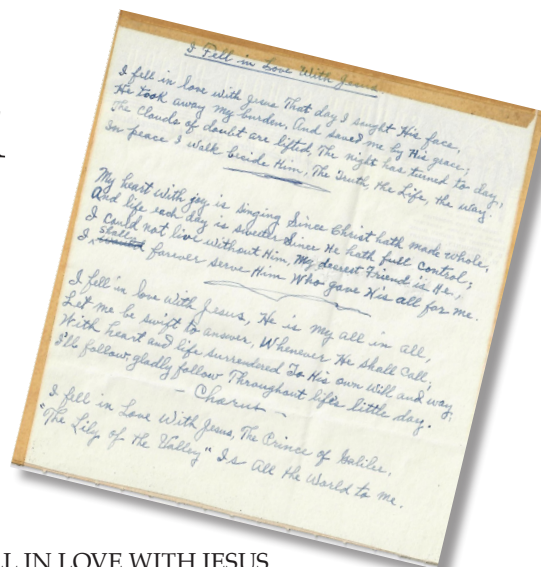 I Fell in Love With Jesus
I fell in love with Jesus That day I sought His face,
He took away my burden, And saved me by His grace;
The clouds of doubt are lifted, The night has turned to day,
In peace I walk beside Him, The Truth, the Life, the way.
My heart with joy is singing Since Christ hath made whole,
And life each day is sweeter Since He hath full control;
I could not live without Him, My dearest Friend is He,
I shall forever serve Him Who gave His all for me.
I fell in love with Jesus, He is my all in all,
Let me be swift to answer, Whenever He shall call;
With heart and life surrendered To His own will and way,
I'll follow gladly follow Throughout life's little day.
- Chorus -
I fell in Love With Jesus, The Prince of Galilee,
"The Lily of the Valley" Is All the World to me.
LL IN LOVE WITH JESUS